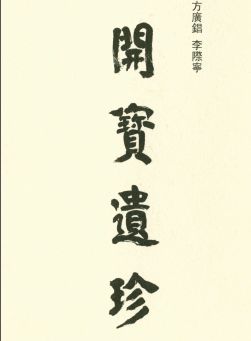 方廣錩 李際寧
開寶遺珍